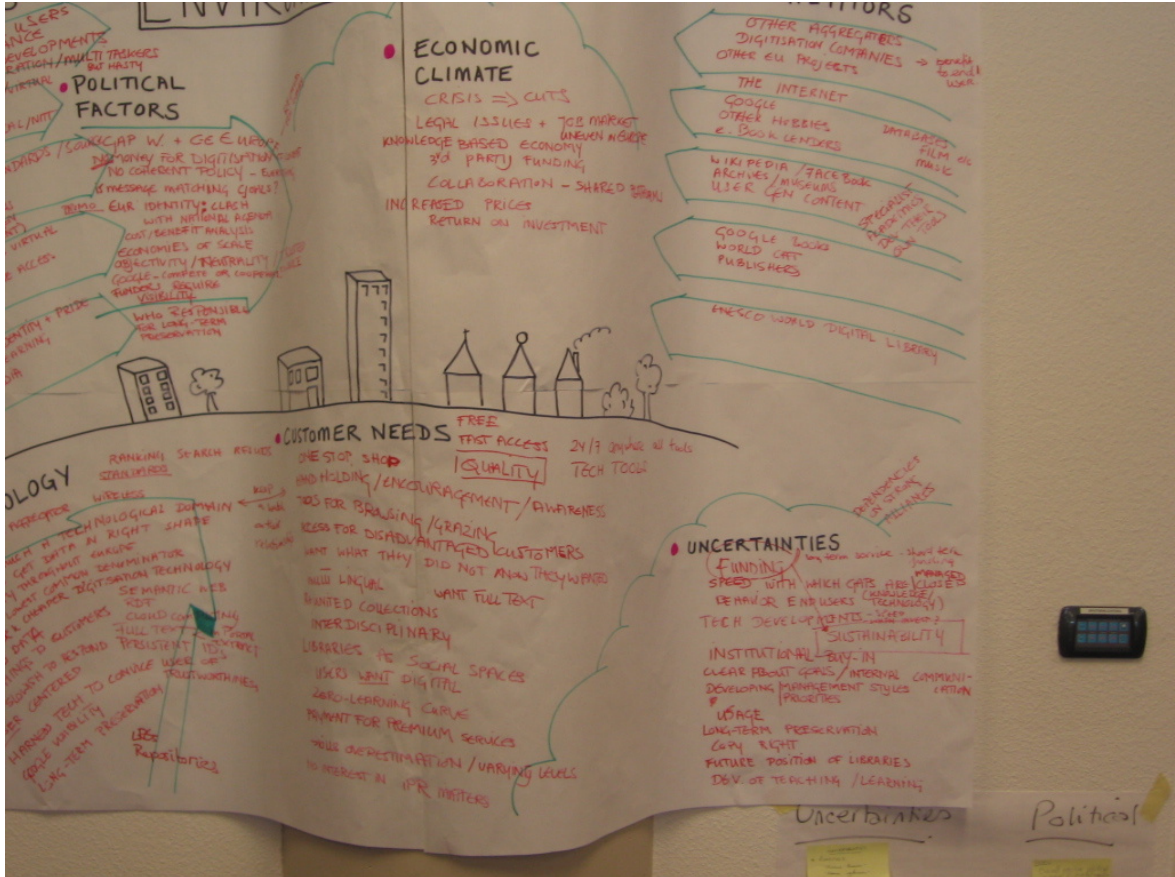 USERS
ANCE
DEVELOPMENTS
RATION/MULTI TASKERS
BUT HASTY
VIRTUAL
POLITICAL
FACTORS
GAP W. + CE EUROPE
NO MONEY FOR DIGITISATION
NO COHERENT POLICY - 
MESSAGE MATCHING GOALS?
EUR IDENTITY: CLASH
WITH NATIONAL AGENDA
COST/BENEFIT ANALYSIS
ECONOMIES OF SCALE
OBJECTIVITY/NEUTRALITY
GOOGLE - COMPETE OR COOPERATE
FUNDERS REQUIRE
VISIBILITY
WHO RESPONSIBLE
FOR LONG-TERM
PRESERVATION
VIRTUAL
ACCESS
ENTITY + PRIDE
EARNING
DIA
ECONOMIC
CLIMATE
CRISIS => CUTS
LEGAL ISSUES + JOB MARKET
UNEVEN IN EUROPE
KNOWLEDGE BASED ECONOMY
3rd PARTY FUNDING
COLLABORATION - SHARED
INCREASED PRICES
RETURN ON INVESTMENT
OTHER AGGREGATERS
DIGITISATION COMPANIES
OTHER EU PROJECTS
→ benefit
to end
user
THE INTERNET
GOOGLE
OTHER HOBBIES
e-BOOK LENDERS
DATABASES
FILM etc
MUSIC
WIKIPEDIA / FACEBOOK
ARCHIVES/MUSEUMS
USER GEN CONTENT
SPECIALIST
ACADEMICS
DEV THEIR
OWN TOOLS
GOOGLE BOOKS
WORLD CAT
PUBLISHERS
UNESCO WORLD DIGITAL LIBRARY
CUSTOMER NEEDS
FREE
FAST ACCESS
QUALITY
24/7
TECH TOOLS
ONE STOP SHOP
HAND HOLDING/ENCOURAGEMENT/AWARENESS
TOOLS FOR BROWSING/GRAZING
ACCESS FOR DISADVANTAGED CUSTOMERS
WANT WHAT THEY DID NOT KNOW THEY WANTED
MULTI LINGUAL
WANT FULL TEXT
COLLECTIONS
INTERDISCIPLINARY
LIBRARIES AS SOCIAL SPACES
USERS WANT DIGITAL
ZERO-LEARNING CURVE
PAYMENT FOR PREMIUM SERVICES
SKILLS OVERESTIMATION/VARYING LEVELS
NO INTEREST IN IPR MATTERS
OLOGY
RANKING SEARCH RESULTS
STANDARDS
WIRELESS
TECHNOLOGICAL DOMAIN
GET DATA IN RIGHT SHAPE
THROUGHOUT EUROPE
LOWEST COMMON DENOMINATOR
CHEAPER DIGITISATION TECHNOLOGY
SEMANTIC WEB
RDF
CLOUD COMPUTING
DATA
CUSTOMERS
FULL TEXT
TO RESPOND
PERSISTENT IDs
CENTERED
TECH TO CONVINCE USER OF
TRUSTWORTHINESS
GOOGLE VISIBILITY
LONG-TERM PRESERVATION
Repositories
DEPENDENCIES
ON STRONG
ALLIANCES
UNCERTAINTIES
FUNDING
long term service - short term
funding
SPEED WITH WHICH GAPS ARE CLOSED
BEHAVIOR END USERS (KNOWLEDGE/
TECHNOLOGY)
TECH DEVELOPMENTS
SUSTAINABILITY
INSTITUTIONAL BUY-IN
CLEAR ABOUT GOALS/INTERNAL COMMUNI-
CATION
DEVELOPING MANAGEMENT STYLES
PRIORITIES
USAGE
LONG-TERM PRESERVATION
COPY RIGHT
FUTURE POSITION OF LIBRARIES
DEV. OF TEACHING/LEARNING
Uncertainties
Political